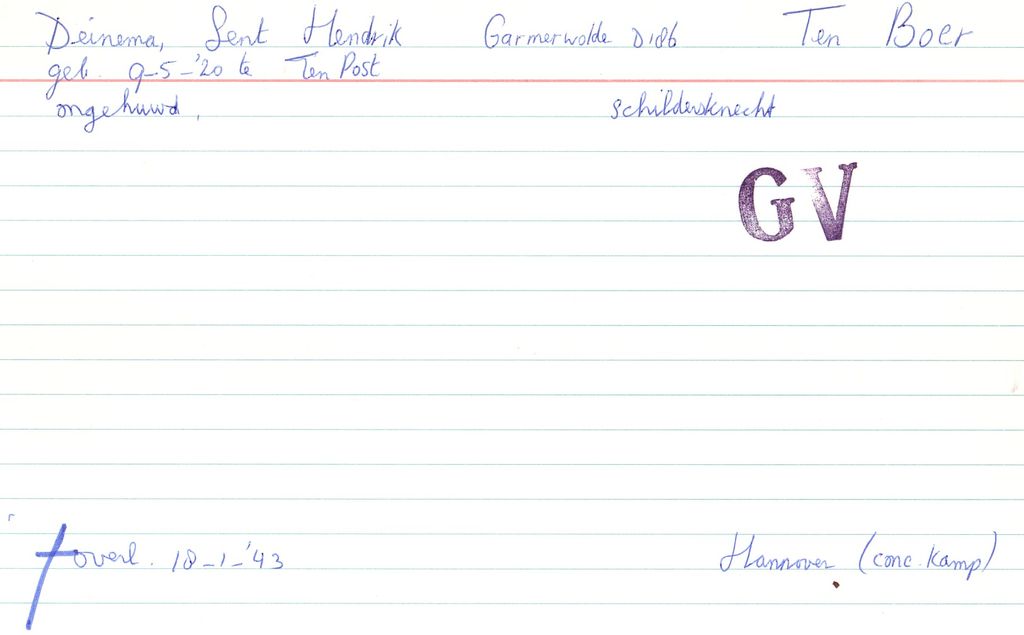 Deinema, Sent Hendrik Garmerwolde D186 Ten Boer
geb. 9-5-'20 te Ten Post
ongehuwd, schildersknecht
GV
† overl. 18-1-'43 Hannover (conc. kamp)